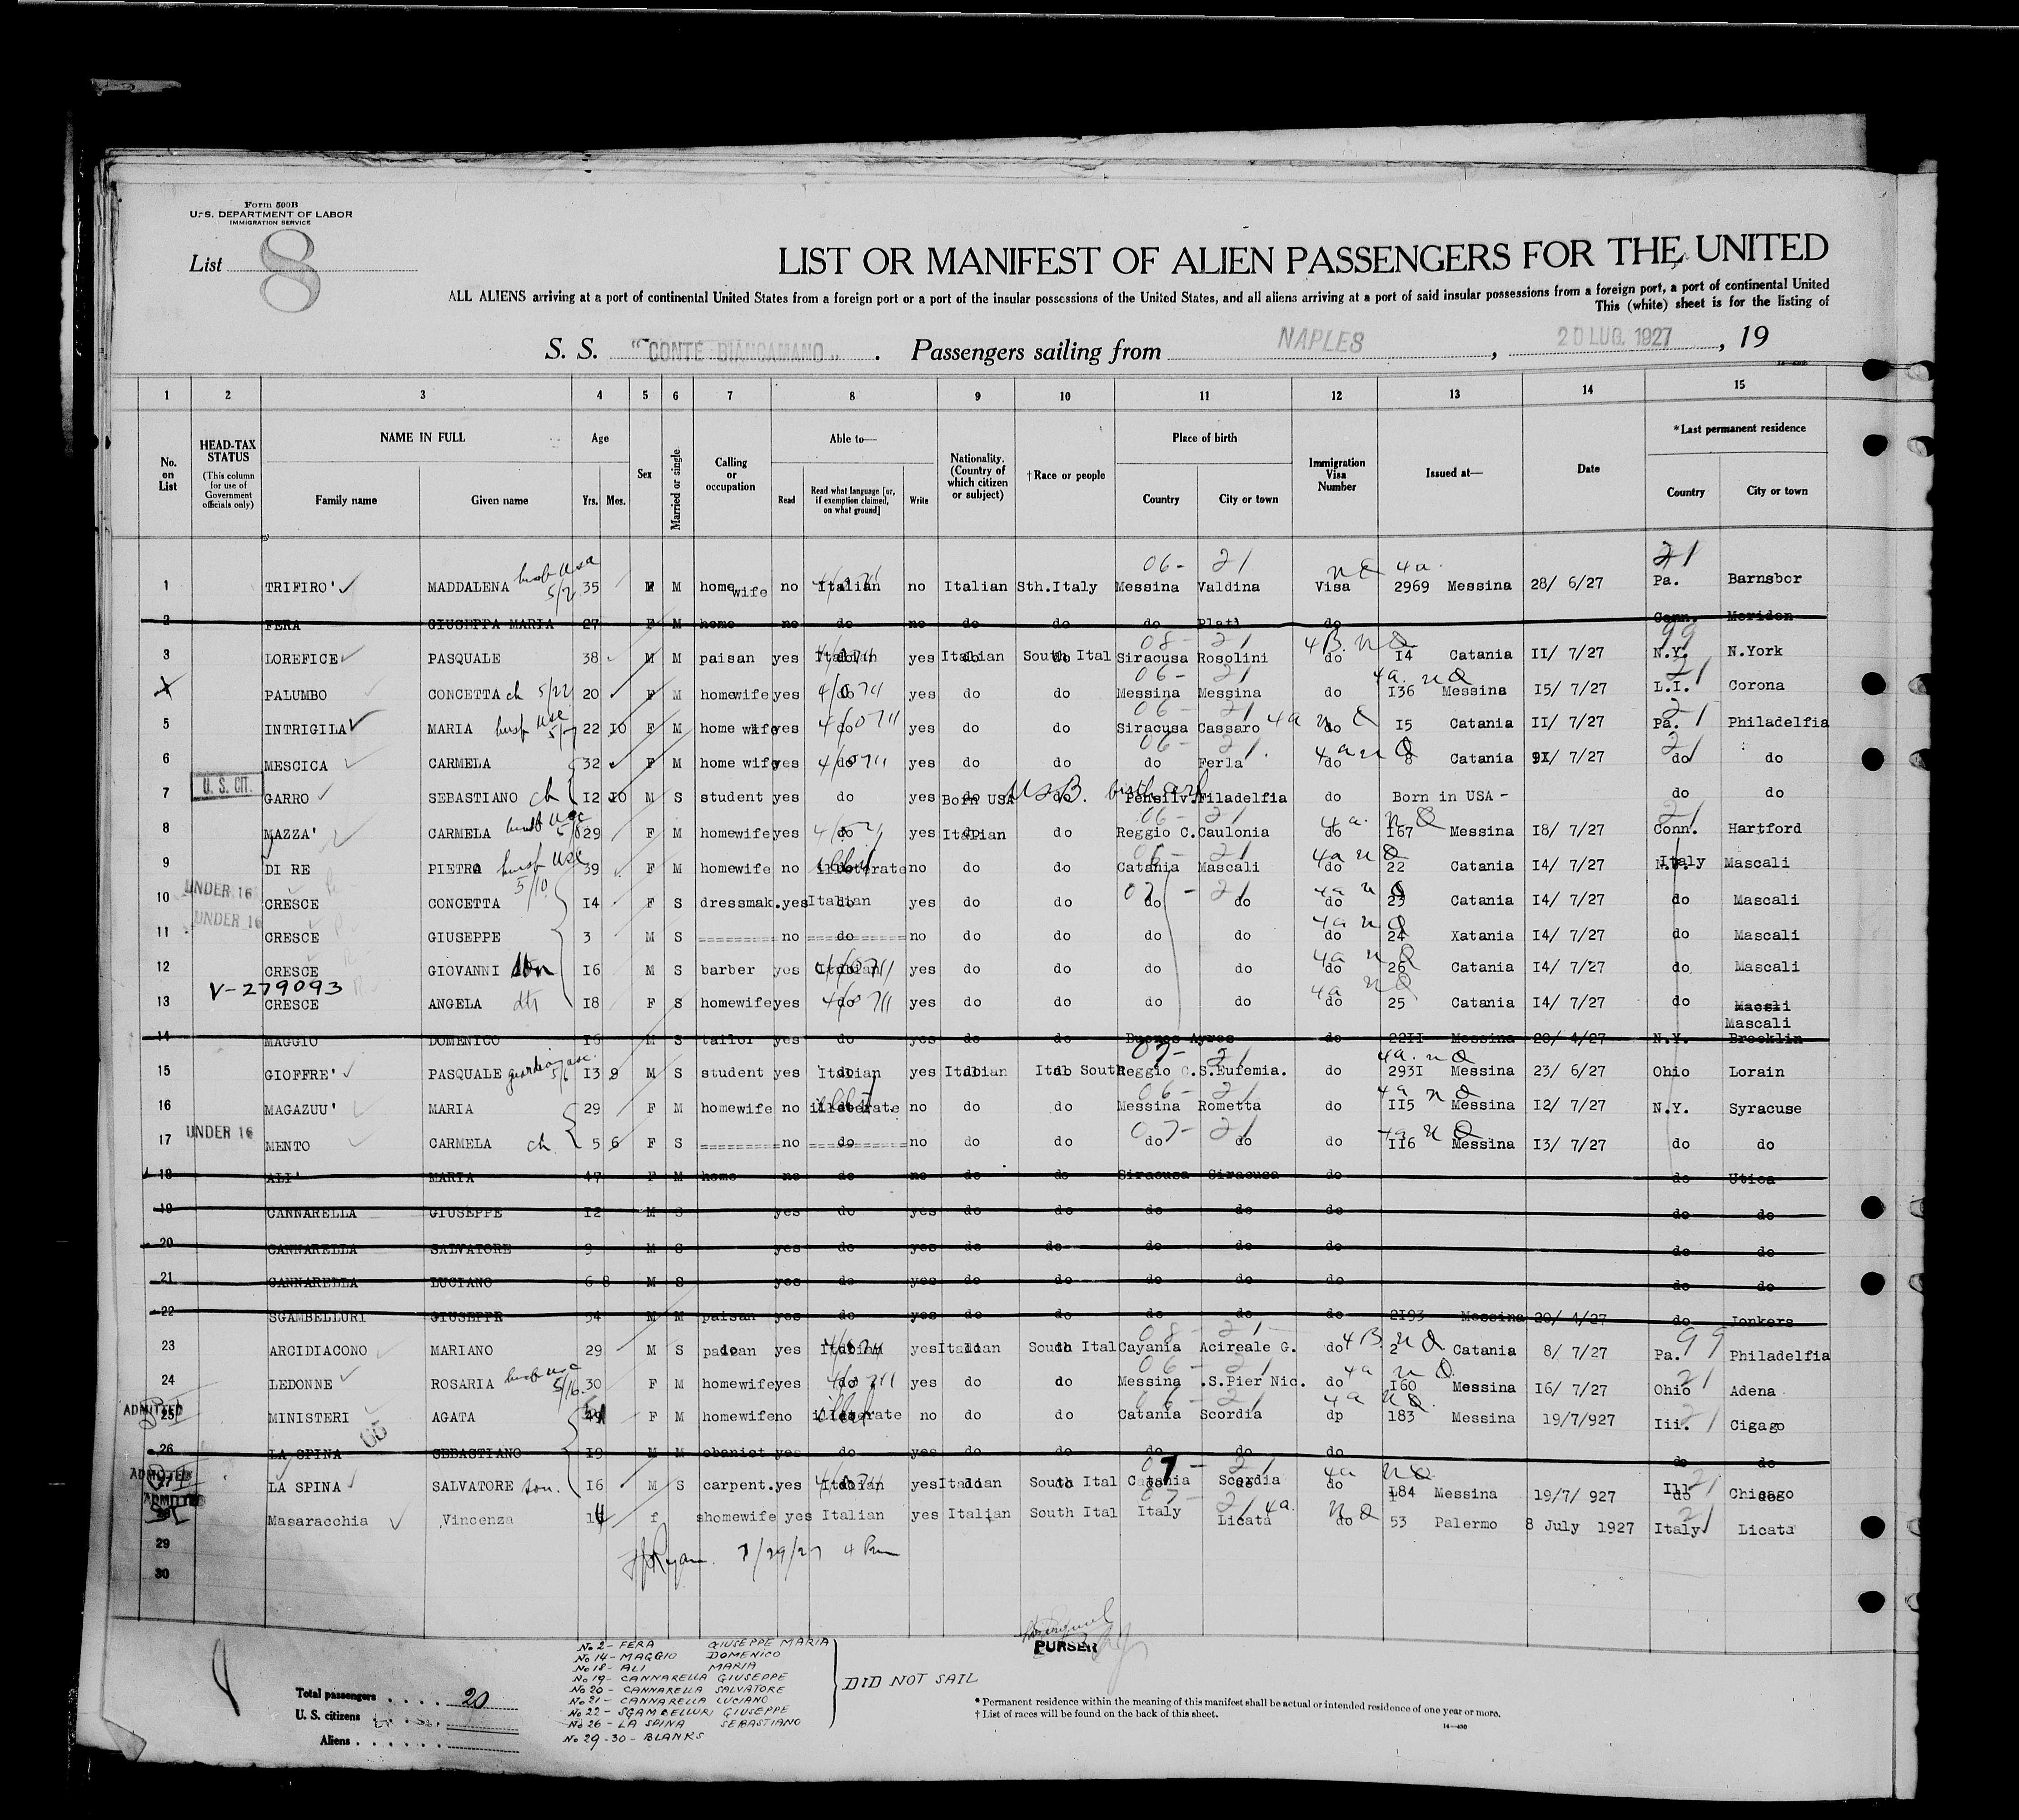 Form 500B
U. S. DEPARTMENT OF LABOR
IMMIGRATION SERVICE
List 8
LIST OR MANIFEST OF ALIEN PASSENGERS FOR THE UNITED
ALL ALIENS arriving at a port of continental United States from a foreign port or a port of the insular possessions of the United States, and all aliens arriving at a port of said insular possessions from a foreign port, a port of continental United
This (white) sheet is for the listing of
S. S. "CONTE BIANCAMANO" . Passengers sailing from NAPLES , 20 LUG. 1927 , 19
1 2 3 4 5 6 7 8 9 10 11 12 13 14 15
No. on List
HEAD-TAX STATUS
(This column for use of Government officials only)
NAME IN FULL
Family name Given name
Age
Yrs. Mos.
Sex
Married or single
Calling or occupation
Able to—
Read
Read what language [or, if exemption claimed, on what ground]
Write
Nationality. (Country of which citizen or subject)
†Race or people
Place of birth
Country City or town
Immigration Visa Number
Issued at—
Date
*Last permanent residence
Country City or town
1 TRIFIRO' MADDALENA 35 F M home wife no Italian no Italian Sth.Italy Messina Valdina Visa 2969 Messina 28/ 6/27 Pa. Barnsbor
2 FERA GIUSEPPA MARIA 27 F M home no do no do do do Plati do Conn. Meriden
3 LOREFICE PASQUALE 38 M M paisan yes Italian yes Italian South Ital Siracusa Rosolini do I4 Catania II/ 7/27 N.Y. N.York
PALUMBO CONCETTA ch 5/22 20 F M homewife yes do yes do do Messina Messina do I36 Messina I5/ 7/27 L.I. Corona
5 INTRIGILA MARIA 22 10 F M home wife yes do yes do do Siracusa Cassaro do I5 Catania II/ 7/27 Pa. Philadelfia
6 MESCICA CARMELA 32 F M home wife yes do yes do do do Ferla do 8 Catania 9I/ 7/27 do do
U. S. CIT.
7 GARRO SEBASTIANO ch I2 10 M S student yes do yes Born USA do Pensilv. Filadelfia do Born in USA - do do
8 MAZZA' CARMELA 29 F M homewife yes do yes Italian do Reggio C. Caulonia do I67 Messina I8/ 7/27 Conn. Hartford
9 DI RE PIETRA 39 F M homewife no illetterate no do do Catania Mascali do 22 Catania I4/ 7/27 Italy Mascali
UNDER 16
10 CRESCE CONCETTA I4 F S dressmak. yes Italian yes do do do do do 23 Catania I4/ 7/27 do Mascali
UNDER 16
11 CRESCE GIUSEPPE 3 M S ========= no do no do do do do do 24 Xatania I4/ 7/27 do Mascali
12 CRESCE GIOVANNI son I6 M S barber yes Italian yes do do do do do 26 Catania I4/ 7/27 do Mascali
V-279093
13 CRESCE ANGELA dtr I8 F S homewife yes do yes do do do do do 25 Catania I4/ 7/27 do Mascali
14 MAGGIO DOMENICO I6 M S tailor yes do yes do do Buenos Ayres do 22II Messina 20/ 4/27 N.Y. Brocklin
15 GIOFFRE' PASQUALE I3 9 M S student yes Italian yes Italian Ital South Reggio C. S.Eufemia. do 293I Messina 23/ 6/27 Ohio Lorain
16 MAGAZUU' MARIA 29 F M homewife no illeterate no do do Messina Rometta do II5 Messina I2/ 7/27 N.Y. Syracuse
UNDER 16
17 MENTO CARMELA ch 5 6 F S ========= no do no do do do do do II6 Messina I3/ 7/27 do do
18 ALI' MARIA 47 F M home no do no do do Siracusa Siracusa do do Utica
19 CANNARELLA GIUSEPPE I2 M S yes do yes do do do do do do do
20 CANNARELLA SALVATORE 9 M S yes do yes do do do do do do do
21 CANNARELLA LUCIANO 6 8 M S yes do yes do do do do do do do
22 SGAMBELLURI GIUSEPPE 34 M M paisan yes do yes do do do do do 2I93 Messina 20/ 4/27 do Jonkers
23 ARCIDIACONO MARIANO 29 M S yes Italian yes Italian South Ital Cayania Acireale G. do 2 Catania 8/ 7/27 Pa. Philadelfia
24 LEDONNE ROSARIA 30 F M homewife yes do yes do do Messina .S.Pier Nic. do I60 Messina I6/ 7/27 Ohio Adena
ADMITTED
25 MINISTERI AGATA F M homewife no no do do Catania Scordia dp 183 Messina 19/7/927 Iii. Cigago
26 LA SPINA SEBASTIANO I9 M M ebanist yes do yes do do do do do do do
ADMITTED
LA SPINA SALVATORE son. I6 M S carpent. yes Italian yes Italian South Ital Catania Scordia do 184 Messina 19/7/ 927 Ill Chicago
ADMITTED
Masaracchia Vincenza f s homewife yes Italian yes Italian South Ital Italy Licata do 53 Palermo 8 July 1927 Italy Licata
29 7/29/27 4 Pm
30
PURSER
No 2 - FERA GIUSEPPE MARIA
No 14 - MAGGIO DOMENICO
No 18 - ALI MARIA
No 19 - CANNARELLA GIUSEPPE
No 20 - CANNARELLA SALVATORE
No 21 - CANNARELLA LUCIANO
No 22 - SGAMBELLURI GIUSEPPE
No 26 - LA SPINA SEBASTIANO
No 29-30 - BLANKS
DID NOT SAIL
Total passengers . . . . 20
U. S. citizens . . . . .
Aliens . . . . . .
* Permanent residence within the meaning of this manifest shall be actual or intended residence of one year or more.
† List of races will be found on the back of this sheet.
14—430